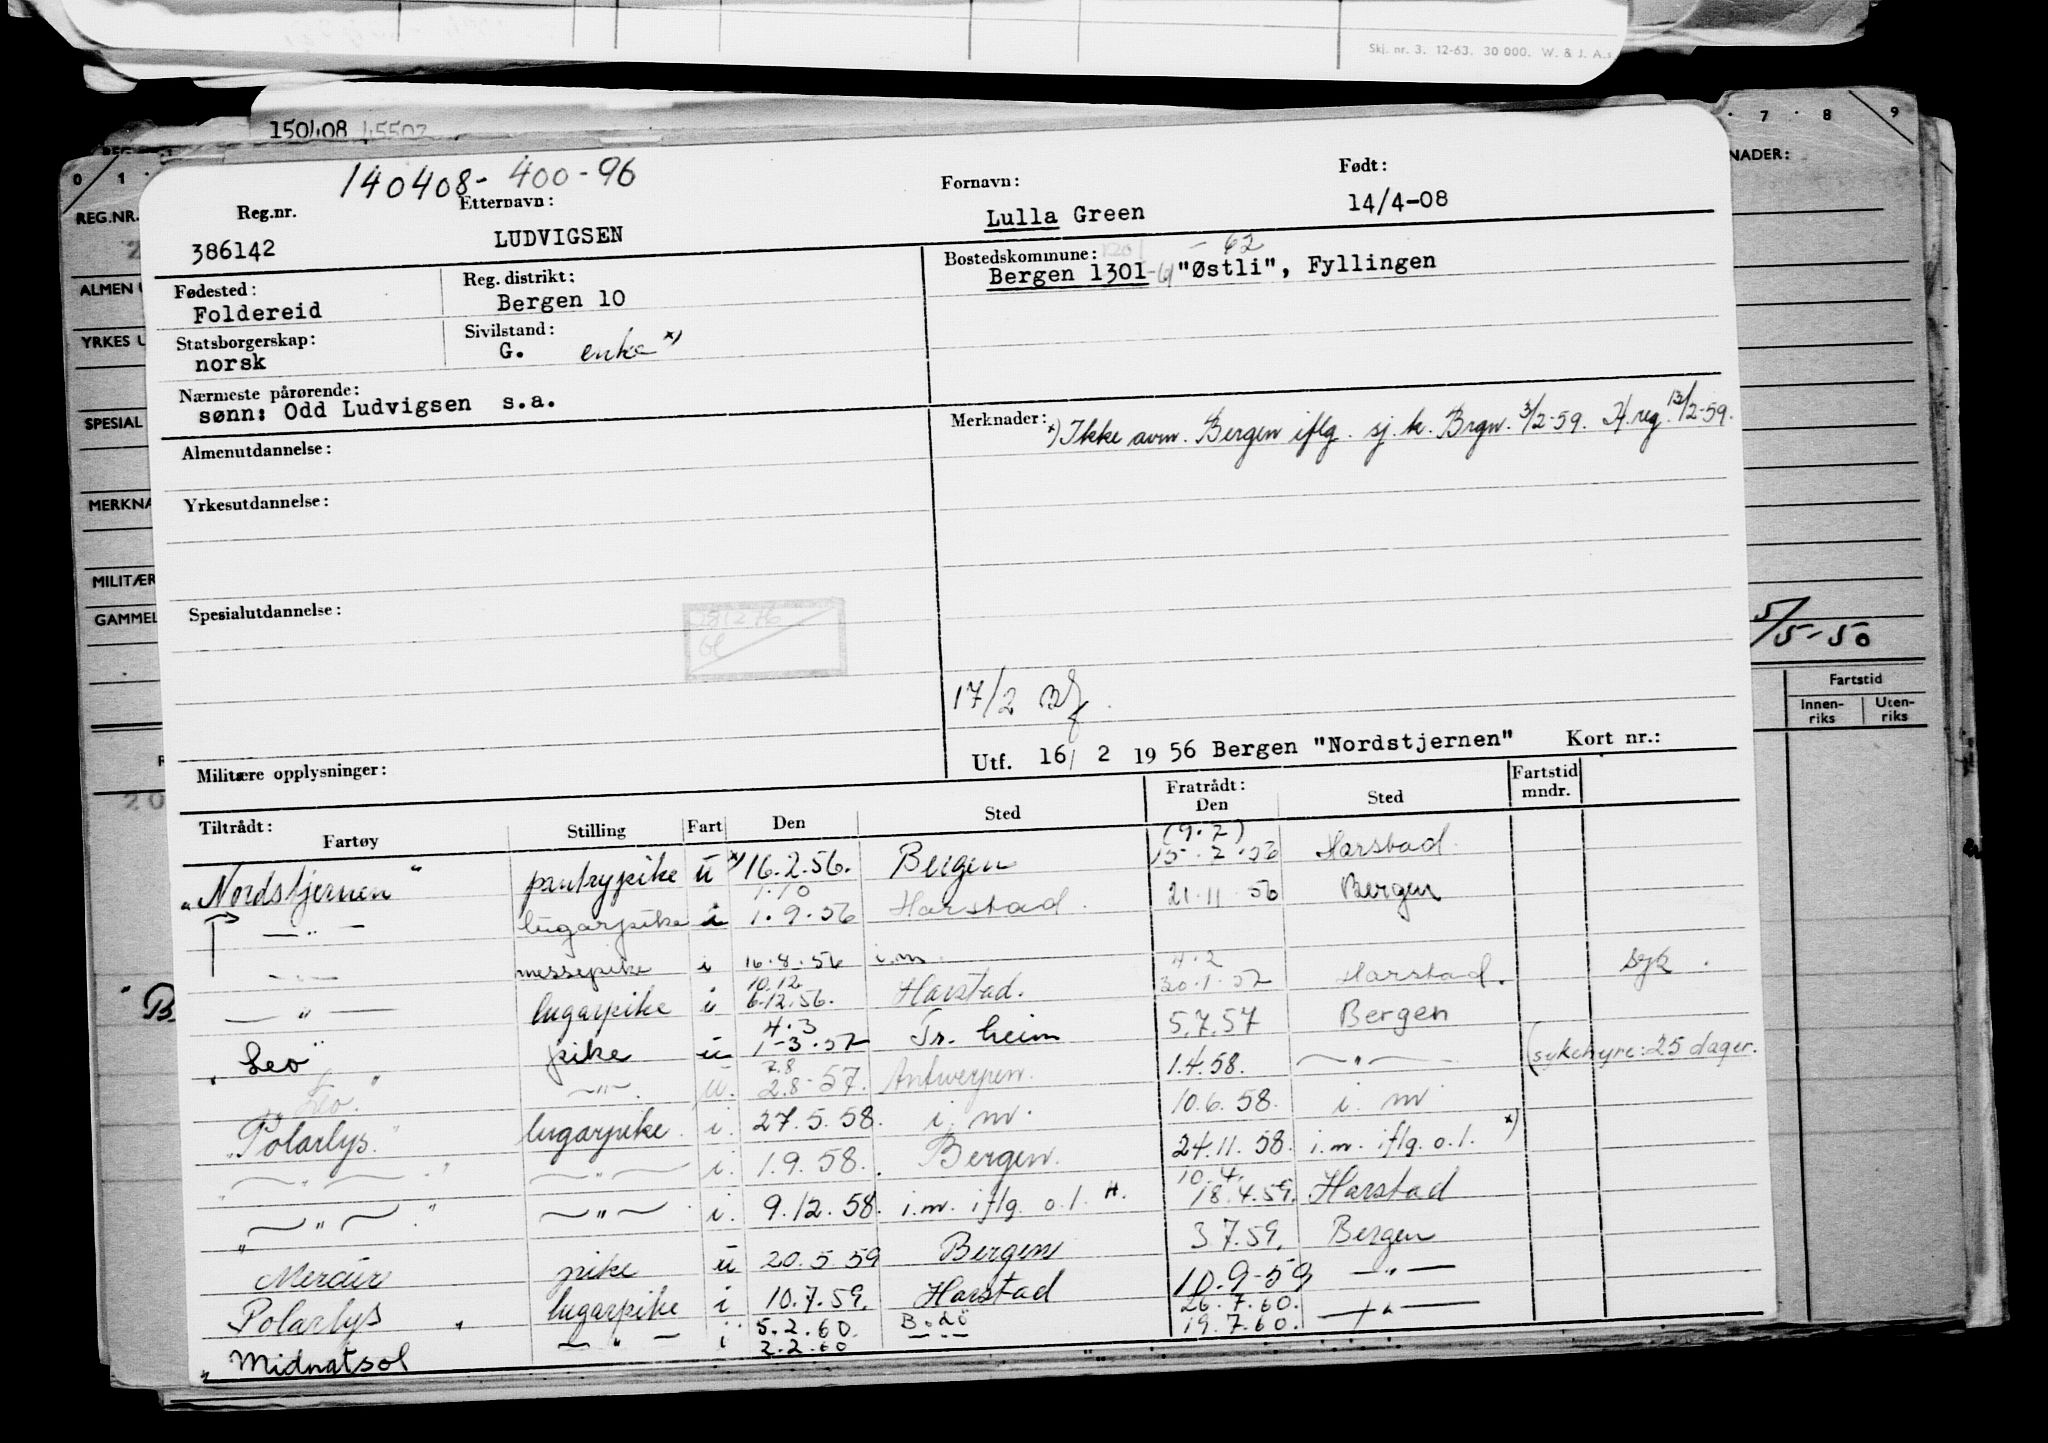 Skj. nr. 3. 12-63. 30 000. W. & J. A.s
150408 45502
7 8 9
0 1
NADER:
REG.NR.
ALMEN U
YRKES U
SPESIAL
MERKNA
MILITÆR
GAMMEL
5/5-50
Fartstid
Innen-riks Uten-riks
140408- 400-96
Reg.nr. Etternavn: Fornavn: Født:
386142 LUDVIGSEN Lulla Green 14/4-08
Fødested: Reg. distrikt: Bostedskommune: 1201 - 62
Foldereid Bergen 10 Bergen 1301-61 "Østli", Fyllingen
Statsborgerskap: Sivilstand:
norsk G. enke x)
Nærmeste pårørende:
sønn: Odd Ludvigsen s.a.
Merknader: x) Ikke avm. Bergen iflg. sj. k. Brgn. 3/2-59. H. reg. 13/2-59.
Almenutdannelse:
Yrkesutdannelse:
Spesialutdannelse:
17/2
Militære opplysninger:
Utf. 16/ 2 1956 Bergen "Nordstjernen" Kort nr.:
Tiltrådt: Fratrådt: Fartstid
Fartøy Stilling Fart Den Sted Den Sted mndr.
(9.2)
"Nordstjernen" pantrypike u x) 16.2.56. Bergen 15.2.56 Harstad.
1.10
—"— lugarpike i 1.9.56 Harstad. 21.11.56 Bergen
—"— messepike i 16.8.56 i.m.
10.12 4.2
—"— lugarpike i 6.12.56. Harstad. 30.1.57 Harstad. syk.
4.3
"Leo" pike u 1-3.57 Tr. heim 5.7.57 Bergen
7.8
"Leo." —"—. u. 2.8-57. Antwerpen. 1.4.58. —"— (sykehyre: 25 dager.
"Polarlys." lugarpike. i. 27.5.58. i. m. 10.6.58. i. m
"—"—" —"— i. 1.9.58. Bergen. 24.11.58. i.m. iflg. o.l. x)
10.4.
"—"—" —"— i. 9.12.58. i.m. iflg. o.l. H. 18.4.59. Harstad
Mercur pike u 20.5 59 Bergen 3 7.59. Bergen
Polarlys " lugarpike i 10.7.59. Harstad 10.9-59 —"—
5.2.60. Bodö 26.7.60.
"Midnatsol —"— i 2.2.60 —"— 19.7.60. —"—